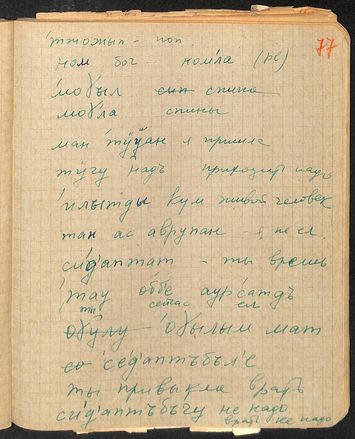 77
'тжожып - поп
ном бог ном'ла (pl)
'мобыл сып спина
мобла спины
ман 'тӱӱан я пришла
тӱгу надъ приходить надо
'илытды кум живой человек
тан ас аврупан я не ел
си'даптат - ты врешь
'тау оббе аур'сатдъ
ты сейчас ел
обулу 'обылым мат
со 'седаптъбъл'е
ты привыкла врать
сидаптъбъчу не надо
врать не надо